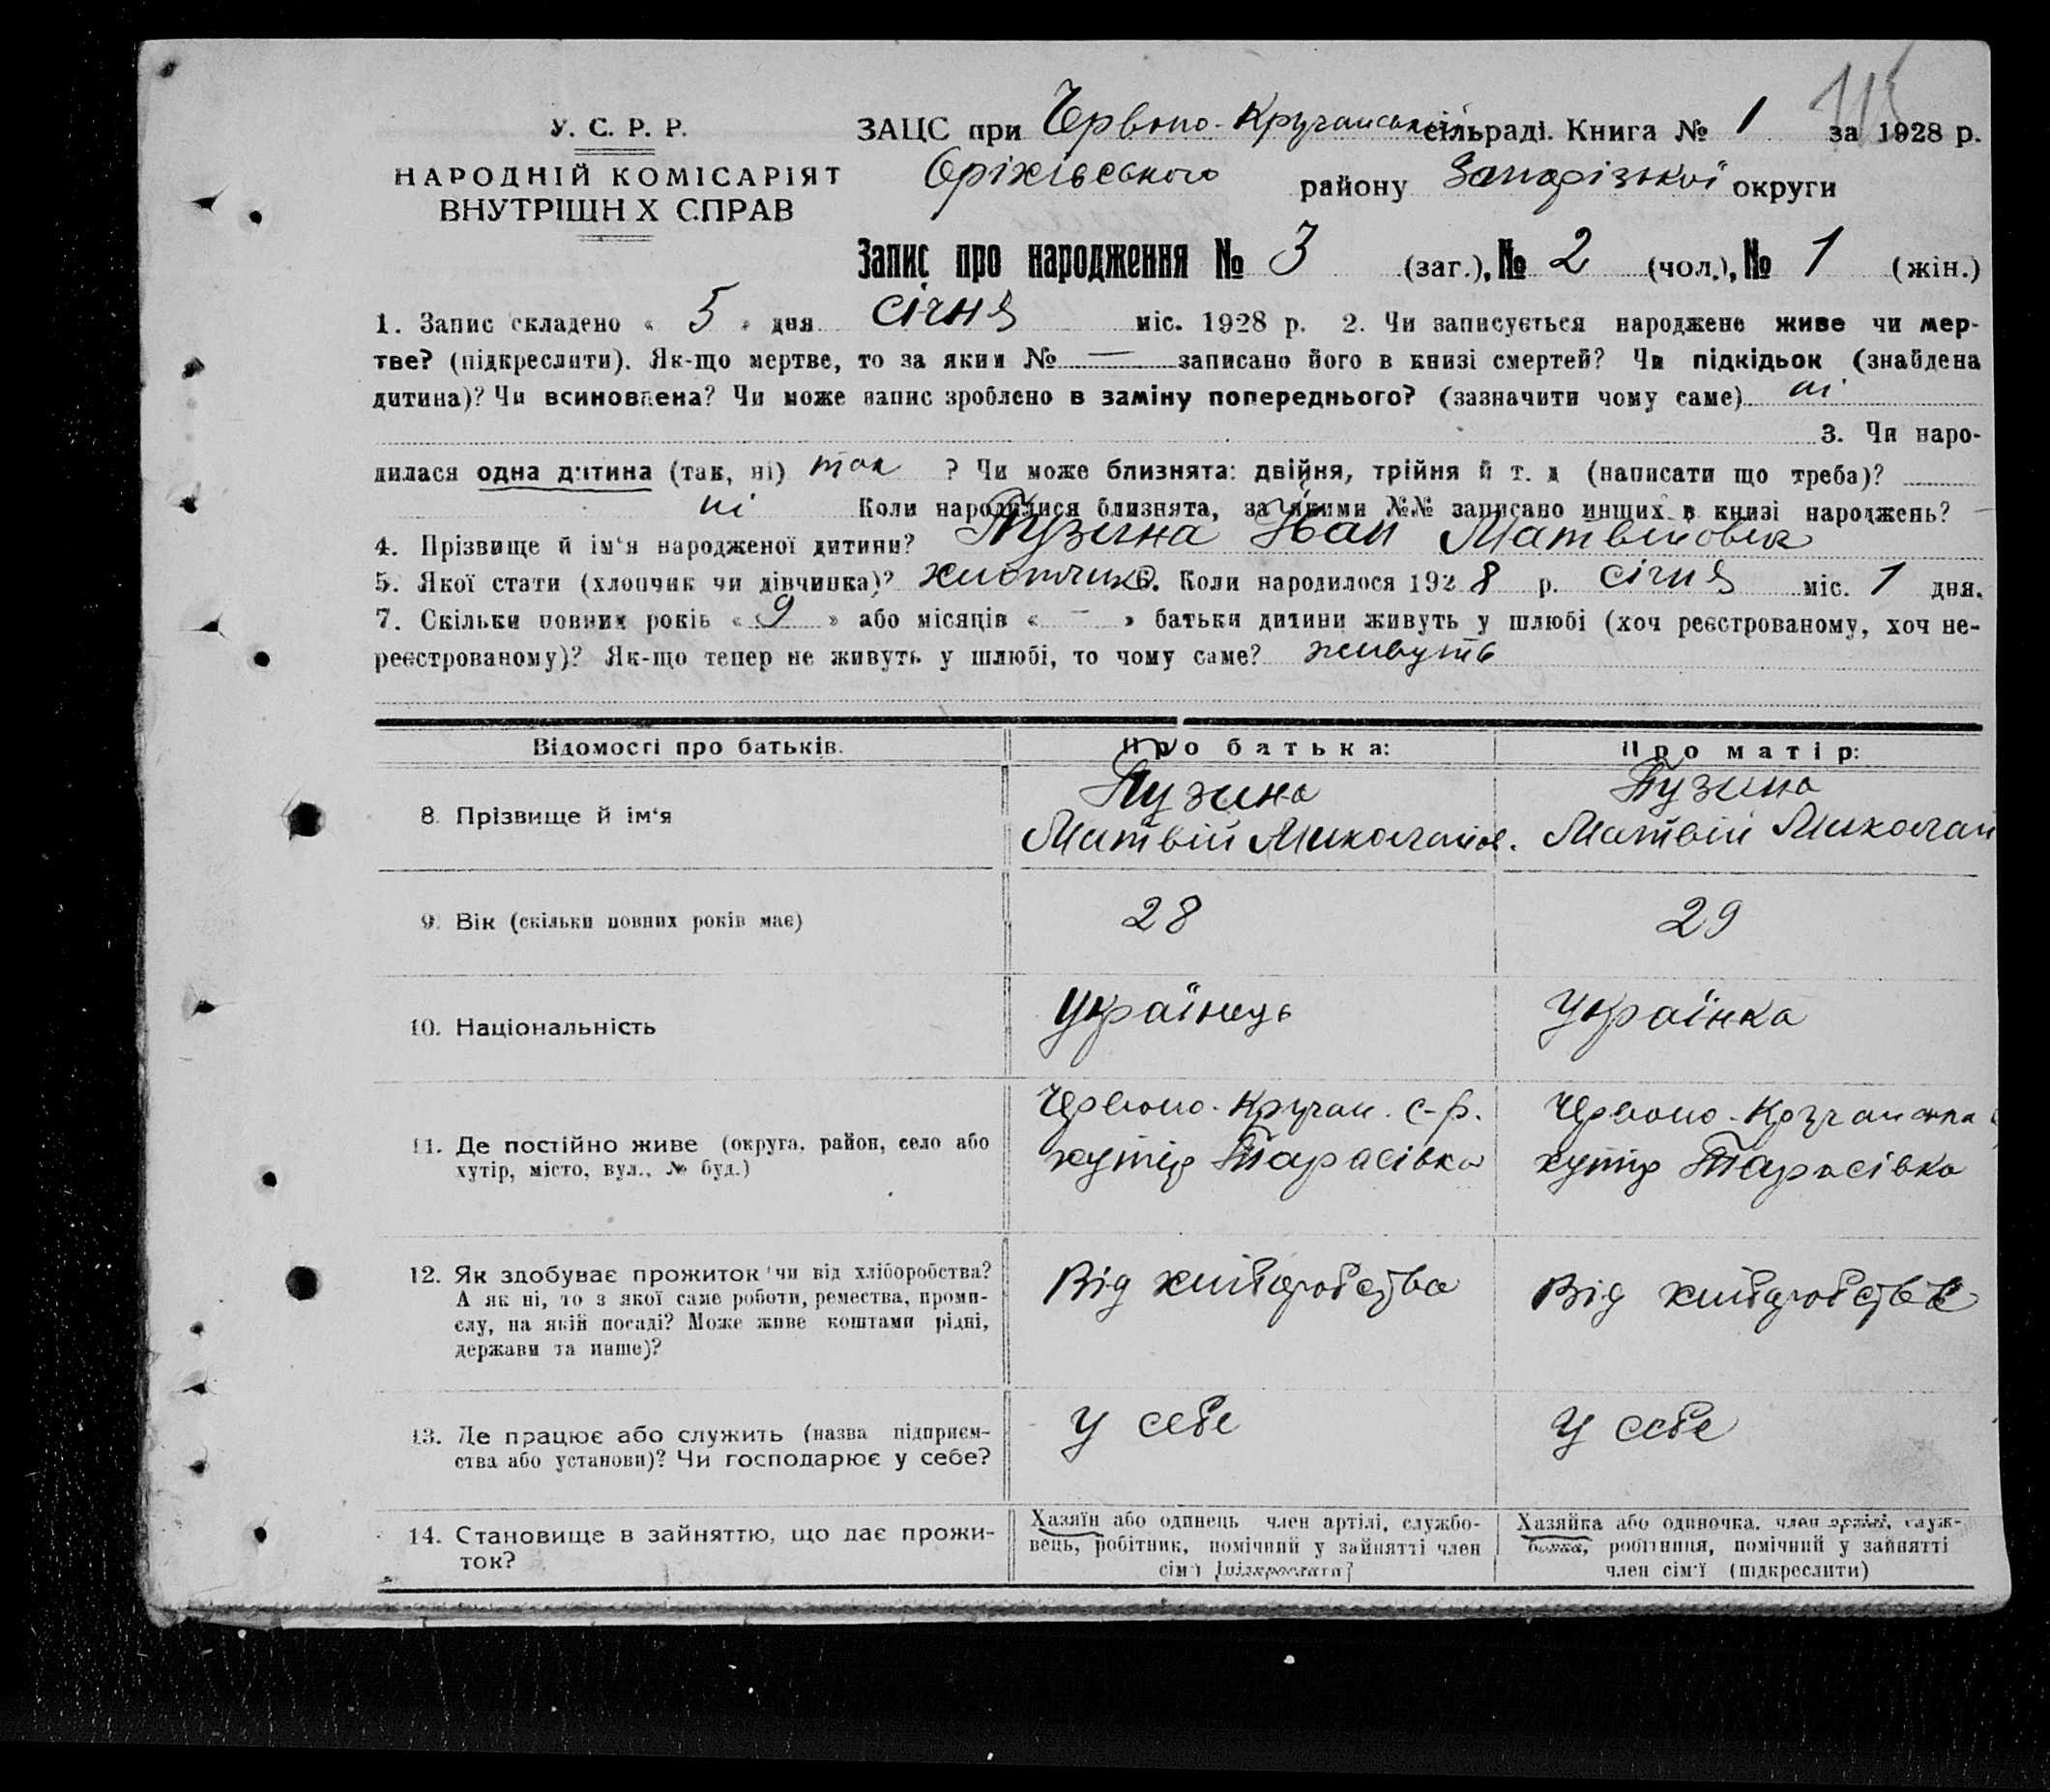 115
У. С. Р. Р.
НАРОДНІЙ КОМІСАРІЯТ
ВНУТРІШН Х СПРАВ
ЗАЦС при Червоно-Кручанській сільраді. Книга № 1 за 1928 р.
Оріхівського району Запорізької округи
Запис про народження № 3 (заг.), № 2 (чол.), № 1 (жін.)
1. Запис складено « 5 » дня січня міс. 1928 р. 2. Чи записується народжене живе чи мер-
тве? (підкреслити). Як-що мертве, то за яким № — записано його в книзі смертей? Чи підкідьок (знайдена
дитина)? Чи всиновлена? Чи може запис зроблено в заміну попереднього? (зазначити чому саме) ні
3. Чи наро-
дилася одна дитина (так, ні) так ? Чи може близнята: двійня, трійня й т. д (написати що треба)?
ні Коли народилися близнята, за якими №№ записано инщих в книзі народжень? —
4. Прізвище й ім'я народженої дитини? Пузина Іван Матвійович
5. Якої статі (хлопчик чи дівчинка)? хлопчик 6. Коли народилося 1928 р. січня міс. 1 дня.
7. Скільки повних років « 9 » або місяців « — » батьки дитини живуть у шлюбі (хоч реєстрованому, хоч не-
реєстрованому)? Як-що тепер не живуть у шлюбі, то чому саме? живуть
Відомості про батьків. Про батька: Про матір:
8. Прізвище й ім'я Пузина Матвій Миколайов. Пузина Матвій Миколай
9. Вік (скільки повних років має) 28 29
10. Національність Українець Українка
11. Де постійно живе (округа, район, село або
хутір, місто, вул., № буд.)
Червоно-Кручан. с-р.
хутір Тарасівка
Червоно-Кручанська
хутір Тарасівка
12. Як здобуває прожиток чи від хліборобства?
А як ні, то з якої саме роботи, ремества, проми-
слу, на якій посаді? Може живе коштами рідні,
держави та инше)?
Від хліборобства
Від хліборобства
13. Де працює або служить (назва підприєм-
ства або установи)? Чи господарює у себе?
У себе
У себе
14. Становище в зайняттю, що дає прожи-
ток?
Хазяїн або одинець член артілі, службо-
вець, робітник, помічний у зайнятті член
сім'ї (підкреслити)
Хазяйка або одиночка, член артілі, служ-
бовка, робітниця, помічний у зайнятті
член сім'ї (підкреслити)